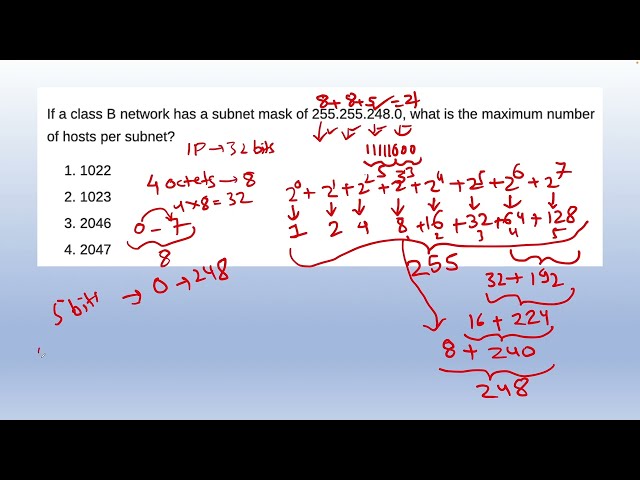 8+ 8+5 = 21
If a class B network has a subnet mask of 255.255.248.0, what is the maximum number
of hosts per subnet?
IP→32 bits
11111000
5 3
1. 1022
2. 1023
3. 2046
4. 2047
4 octets → 8
4×8 = 32
0 – 7
8
2^0 + 2^1 + 2^2 + 2^3 + 2^4 + 2^5 + 2^6 + 2^7
1 2 4 8 +16 +32 +64 +128
2 3 4 5
255
5 bits → 0 → 248
32 + 192
16 + 224
8 + 240
248